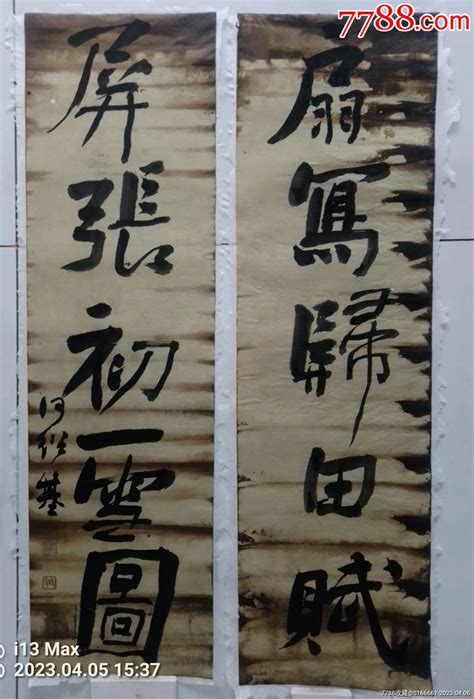 7788.com
扇寫歸田賦
屏張初雪圖
何紹基
i13 Max
2023.04.05 15:37
7788收藏@5166661 2023.04.06